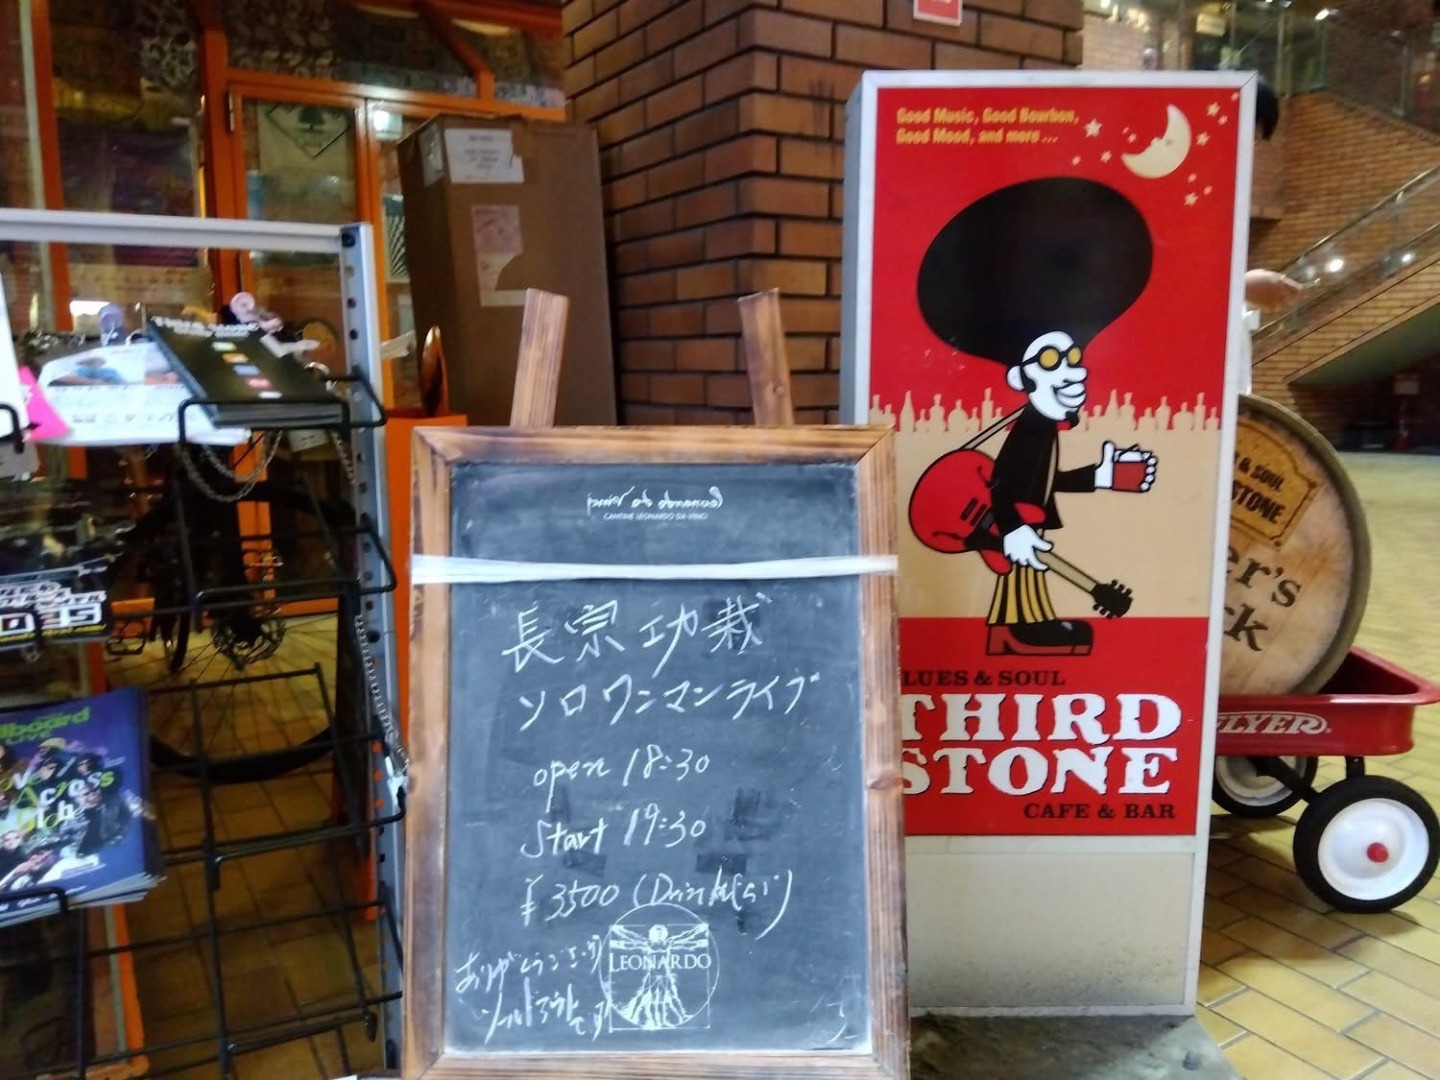 Good Music, Good Bourbon,
Good Mood, and more ...
Leonardo da Vinci
CANTINE LEONARDO DA VINCI
長宗我部功裁
ソロワンマンライブ
open 18:30
start 19:30
¥3500 (Drink別)
ありがとうございます
ソールドアウトです
LEONARDO
LUES & SOUL
THIRD
STONE
CAFE & BAR
& SOUL
STONE
er's
k
FLYER
llboard
LIVE
Across